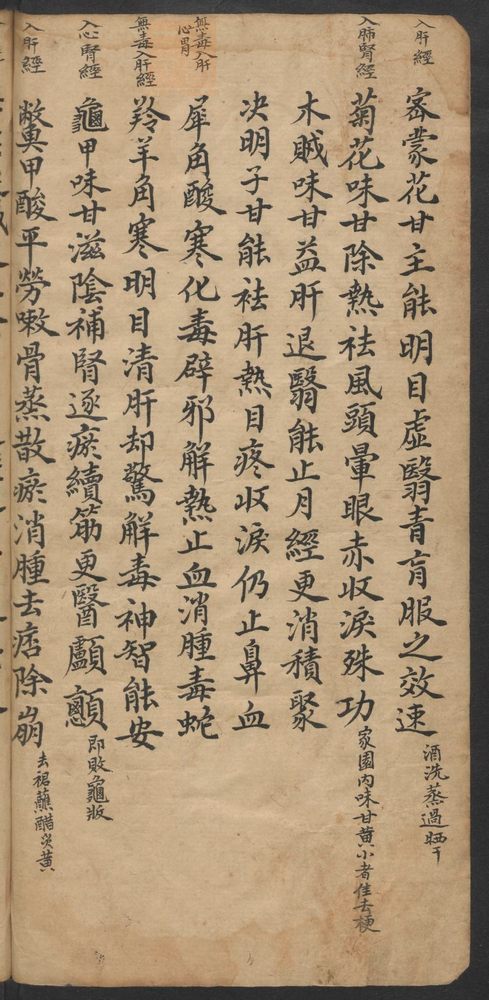 入肝經
密蒙花甘主能明目虛翳青盲服之效速
酒洗蒸過晒干
入肺腎經
菊花味甘除熱祛風頭暈眼赤收淚殊功
家園内味甘黄小者佳去梗
木賊味甘益肝退翳能止月經更消積聚
决明子甘能祛肝熱目疼收淚仍止鼻血
無毒入肝
心胃
犀角酸寒化毒辟邪解熱止血消腫毒蛇
無毒入肝經
羚羊角寒明目清肝却驚解毒神智能安
入心腎經
龜甲味甘滋陰補腎逐瘀續筋更醫顱顖
即敗龜板
入肝經
鱉甲酸平勞嗽骨蒸散瘀消腫去痞除崩
去裙蘸醋炙黄